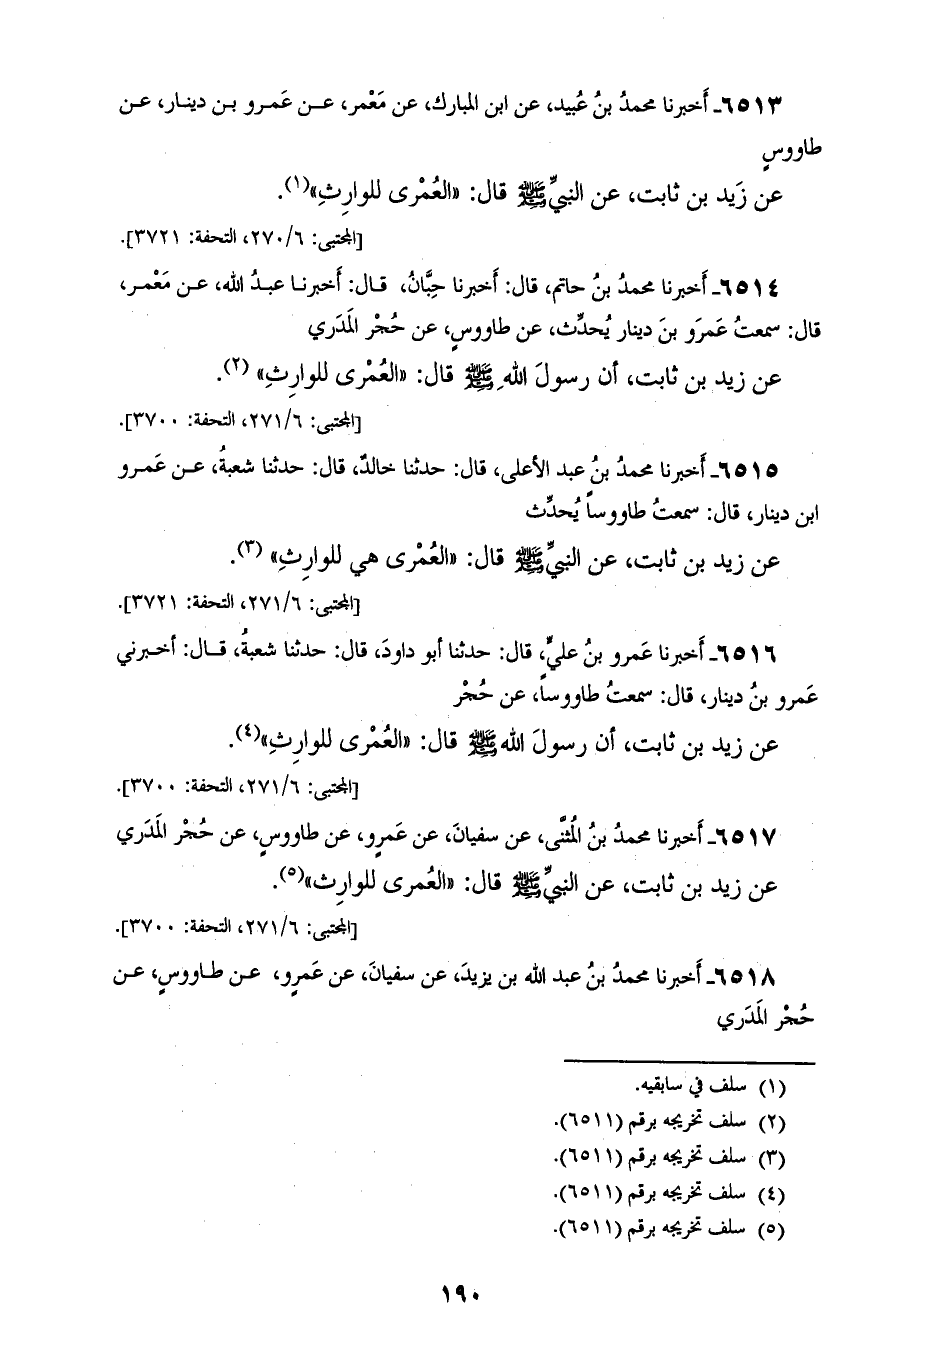 ٦٥١٣ـ أَخبرنا محمدُ بنُ عُبيد، عن ابن المبارك، عن مَعْمر، عـن عَمـرو بـن دينـار، عـن
طاووسٍ
عن زَيد بن ثابت، عن النبيِّ ﷺ قال: «العُمْرى للوارِثِ»(١).
[المجتبى: ٢٧٠/٦، التحفة: ٣٧٢١].
٦٥١٤ـ أَخبرنا محمدُ بنُ حاتم، قال: أَخبرنا حِبَّانُ، قـال: أَخبرنـا عبـدُ الله، عـن مَعْمـر،
قال: سمعتُ عَمرَو بنَ دينار يُحدِّث، عن طاووسٍ، عن حُجْر المَدَري
عن زيد بن ثابت، أن رسولَ اللهِ ﷺ قال: «العُمْرى للوارِثِ» (٢).
[المجتبى: ٢٧١/٦، التحفة: ٣٧٠٠].
٦٥١٥ـ أَخبرنا محمدُ بنُ عبد الأعلى، قال: حدثنا خالدٌ، قال: حدثنا شعبةُ، عـن عَمـرو
ابن دينار، قال: سمعتُ طاووساً يُحدِّث
عن زيد بن ثابت، عن النبيِّ ﷺ قال: «العُمْرى هي للوارِثِ» (٣).
[المجتبى: ٢٧١/٦، التحفة: ٣٧٢١].
٦٥١٦ـ أَخبرنا عَمرو بنُ عليٍّ، قال: حدثنا أبو داودَ، قال: حدثنا شعبةُ، قـال: أخـبرني
عَمرو بنُ دينار، قال: سمعتُ طاووساً، عن حُجْر
عن زيد بن ثابت، أن رسولَ الله ﷺ قال: «العُمْرى للوارِثِ»(٤).
[المجتبى: ٢٧١/٦، التحفة: ٣٧٠٠].
٦٥١٧ـ أَخبرنا محمدُ بنُ المُثنَّى، عن سفيانَ، عن عَمرٍو، عن طاووسٍ، عن حُجْر المَدَري
عن زيد بن ثابت، عن النبيِّ ﷺ قال: «العُمرى للوارِث»(٥).
[المجتبى: ٢٧١/٦، التحفة: ٣٧٠٠].
٦٥١٨ـ أَخبرنا محمدُ بنُ عبد الله بن يزيدَ، عن سفيانَ، عن عَمرٍو، عـن طـاووسٍ، عـن
حُجْر المَدَري
(١) سلف في سابقيه.
(٢) سلف تخريجه برقم (٦٥١١).
(٣) سلف تخريجه برقم (٦٥١١).
(٤) سلف تخريجه برقم (٦٥١١).
(٥) سلف تخريجه برقم (٦٥١١).
١٩٠